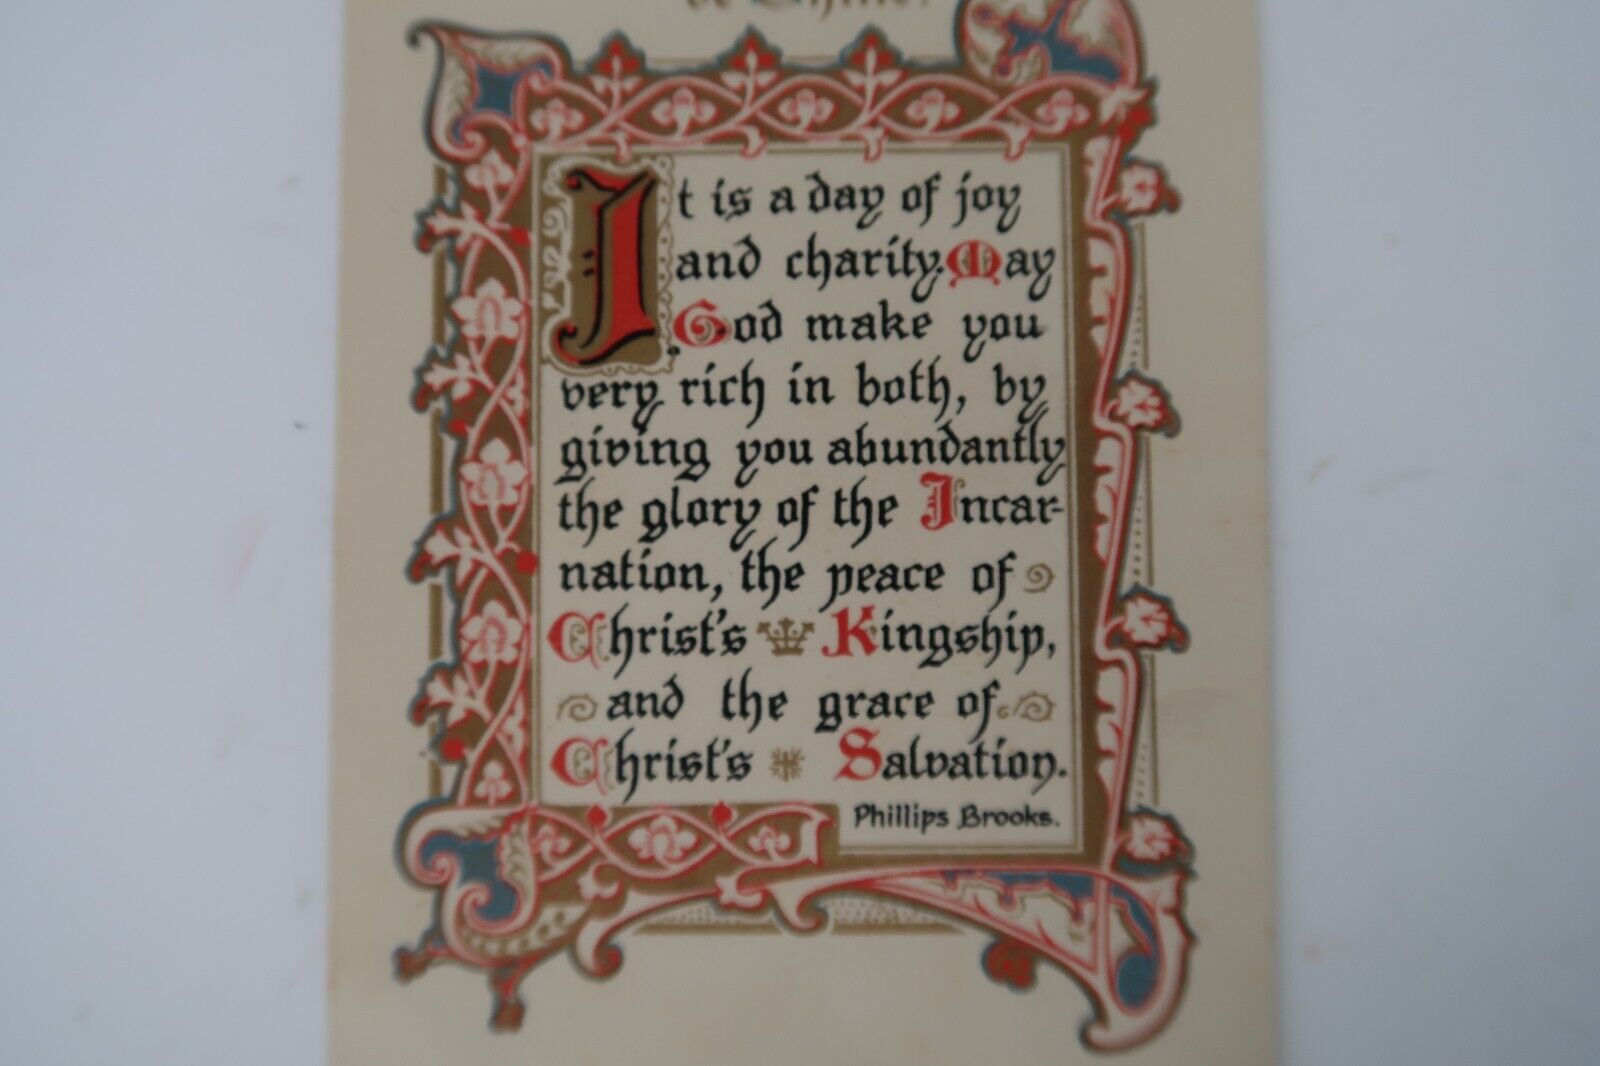 be Thine.
It is a day of joy
and charity. May
God make you
very rich in both, by
giving you abundantly
the glory of the Incar-
nation, the peace of
Christ's Kingship,
and the grace of
Christ's Salvation.
Phillips Brooks.